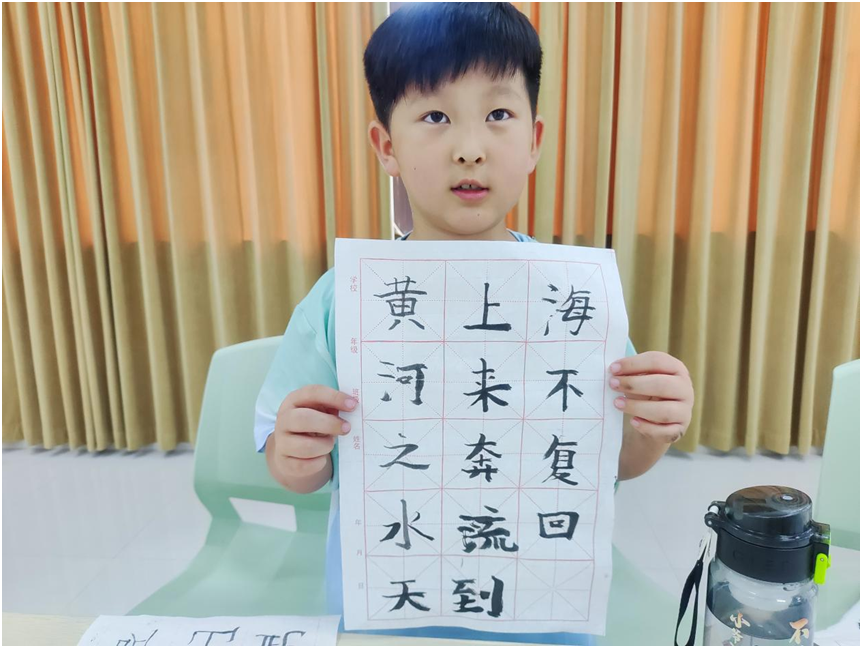 黄河之水天
上来奔流到
海不复回
学校
年级
姓名
年 月 日
不